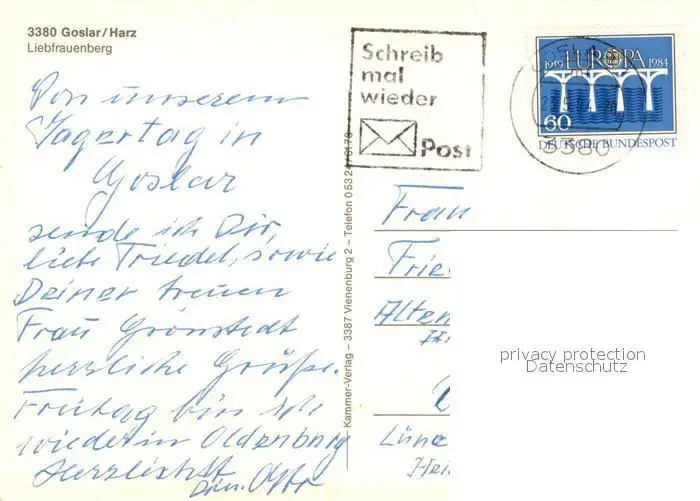 3380 Goslar/Harz
Liebfrauenberg
Schreib
mal
wieder
Post
1959 EUROPA 1984
60
DEUTSCHE BUNDESPOST
3380
Von unserem
Jägertag in
Goslar
sende ich Dir,
liebe Friedel, sowie
Deiner treuen
Frau Grönstedt
herzliche Grüße.
Freitag bin ich
wieder in Oldenburg
Herzlichst
Kammer-Verlag – 3387 Vienenburg 2 – Telefon 05324/6178
Frau
Frie
Alten
Lüne
Hei
privacy protection
Datenschutz